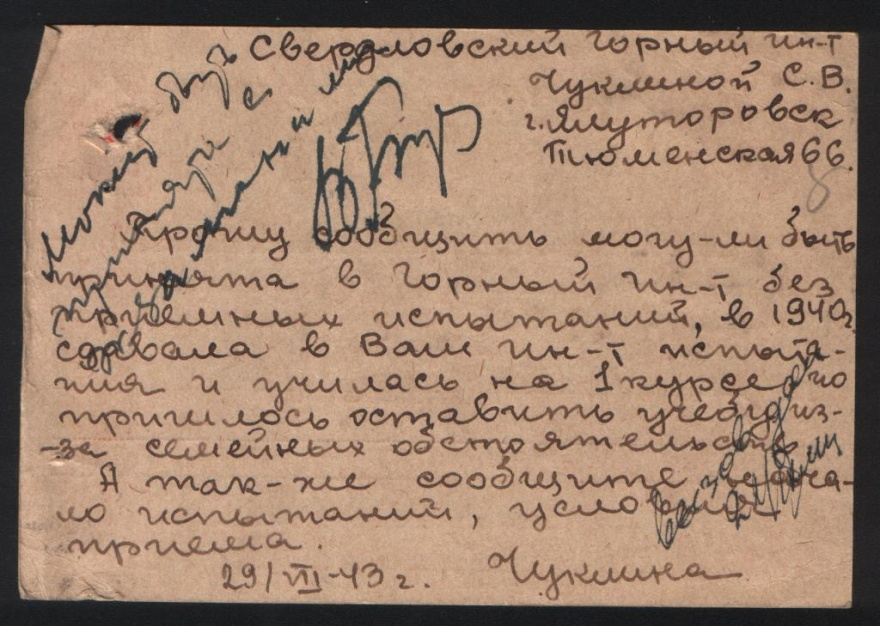 Свердловский Горный ин-т
Чуклиной С.В.
г. Ялуторовск
Тюменская 66.
Прошу сообщить могу-ли быть
принята в Горный ин-т без
приёмных испытаний, в 1940 г.
сдавала в Ваш ин-т испыта-
ния и училась на 1 курсе, но
пришлось оставить учёбу из-
-за семейных обстоятельств
А так-же сообщите нача-
ло испытаний, условия
приема.
29/VII-43 г. Чуклина
может быть
принята с
экзаменами